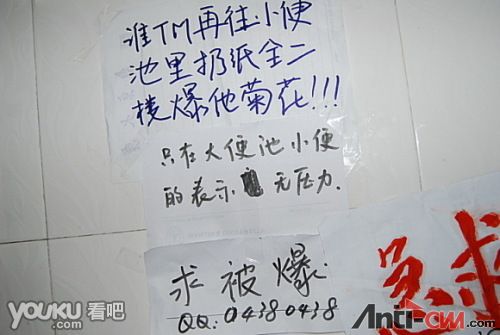 谁TM再往小便
池里扔纸全二
楼爆他菊花!!!
只在大便池小便
的表示 无压力.
求被爆.
QQ:04380438
急求
youku 看吧
Anti-CNN.com